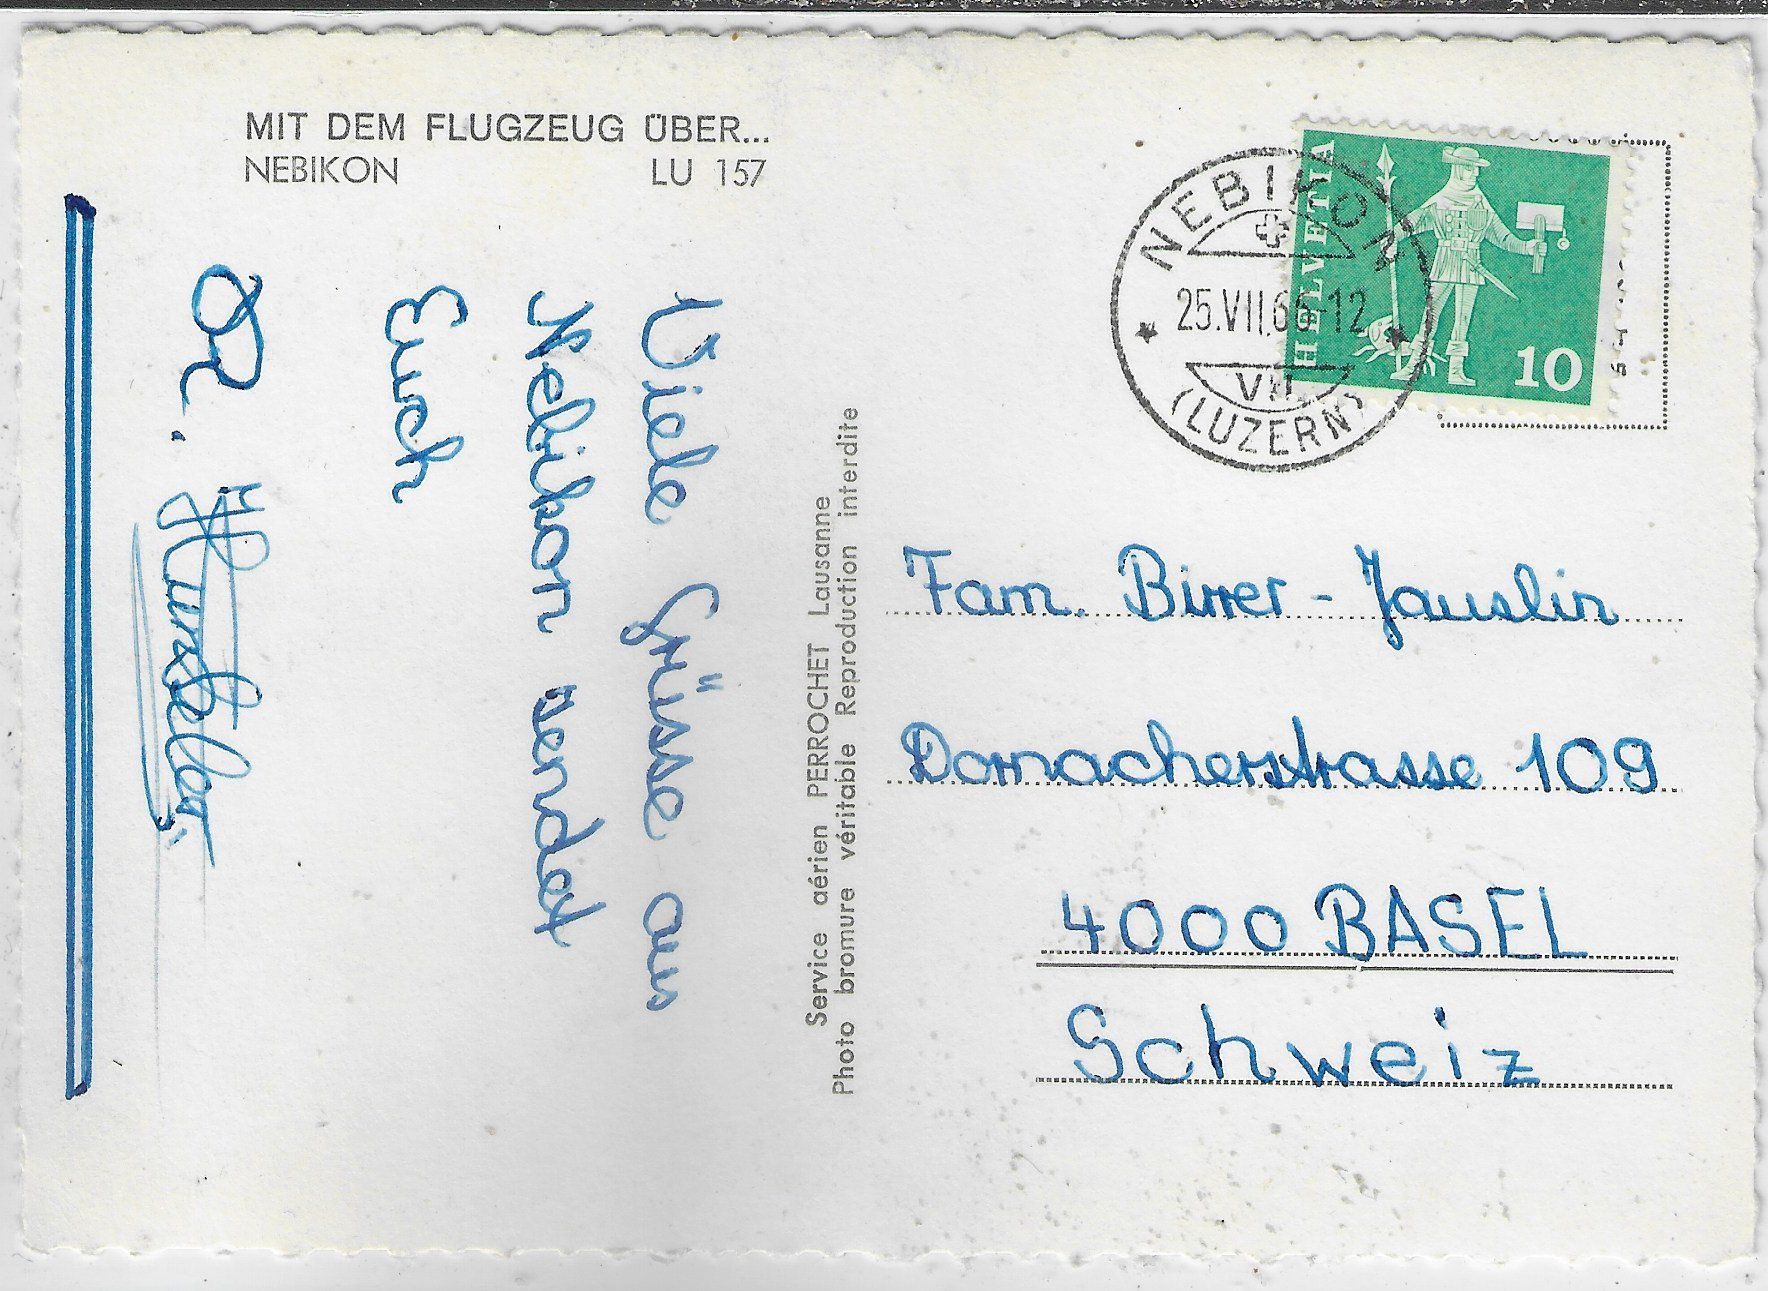 MIT DEM FLUGZEUG ÜBER...
NEBIKON LU 157
Viele Grüsse aus
Nebikon sendet
Euch
Service aérien PERROCHET Lausanne
Photo bromure véritable Reproduction interdite
HELVETIA
10
NEBIKON
25.VII.66-12
VII
(LUZERN)
Fam. Birrer - Jauslin
Dornacherstrasse 109
4000 BASEL
Schweiz